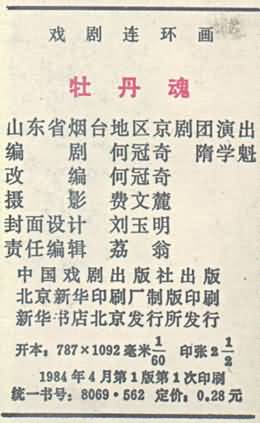 戏剧连环画
牡丹魂
山东省烟台地区京剧团演出
编 剧 何冠奇 隋学魁
改 编 何冠奇
摄 影 费文麓
封面设计 刘玉明
责任编辑 荔 翁
中国戏剧出版社出版
北京新华印刷厂制版印刷
新华书店北京发行所发行
开本：787×1092毫米1/60 印张2 1/2
1984年4月第1版第1次印刷
统一书号：8069·562 定价：0.28元